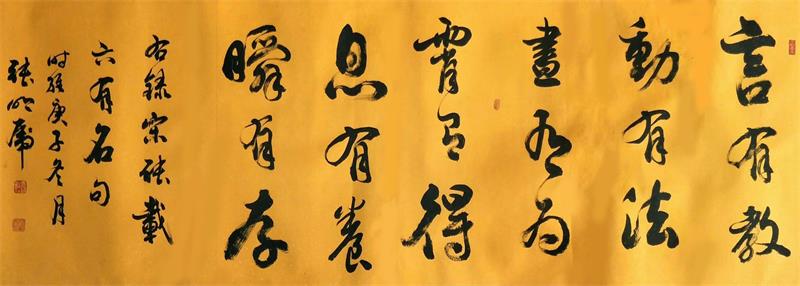 言有教
動有法
晝有为
霄有得
息有養
瞬有存
右錄宋张載
六有名句
时维庚子冬月
张虎